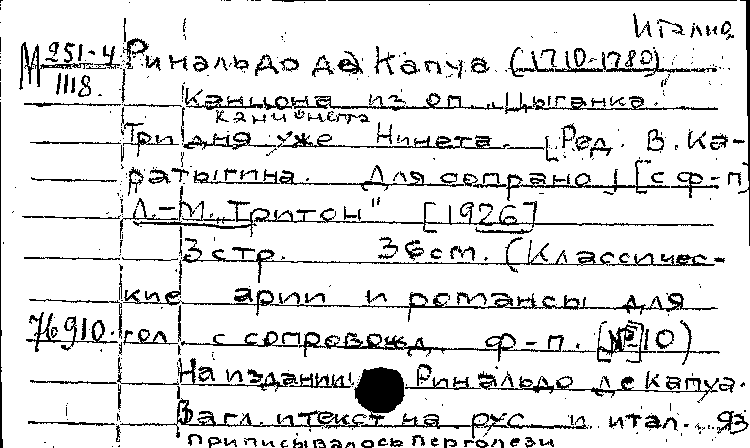 Италия
М 251-4
1118.
Ринальдо да Капуа (1710-1780)
Канцона из оп. „Цыганка.
канцонета
Три дня уже Нинета. [Ред. В. Ка-
ратыгина. Для сопрано] [с ф-п]
Л.-М. „Тритон" [1926]
3 стр. 36 ст. (Классичес-
кие арии и романсы для
76910. гол. с сопровожд. ф-п. [№]10)
На издании: Ринальдо де Капуа.
Загл. и текст на рус. и итал. яз
Приписывалось Перголези